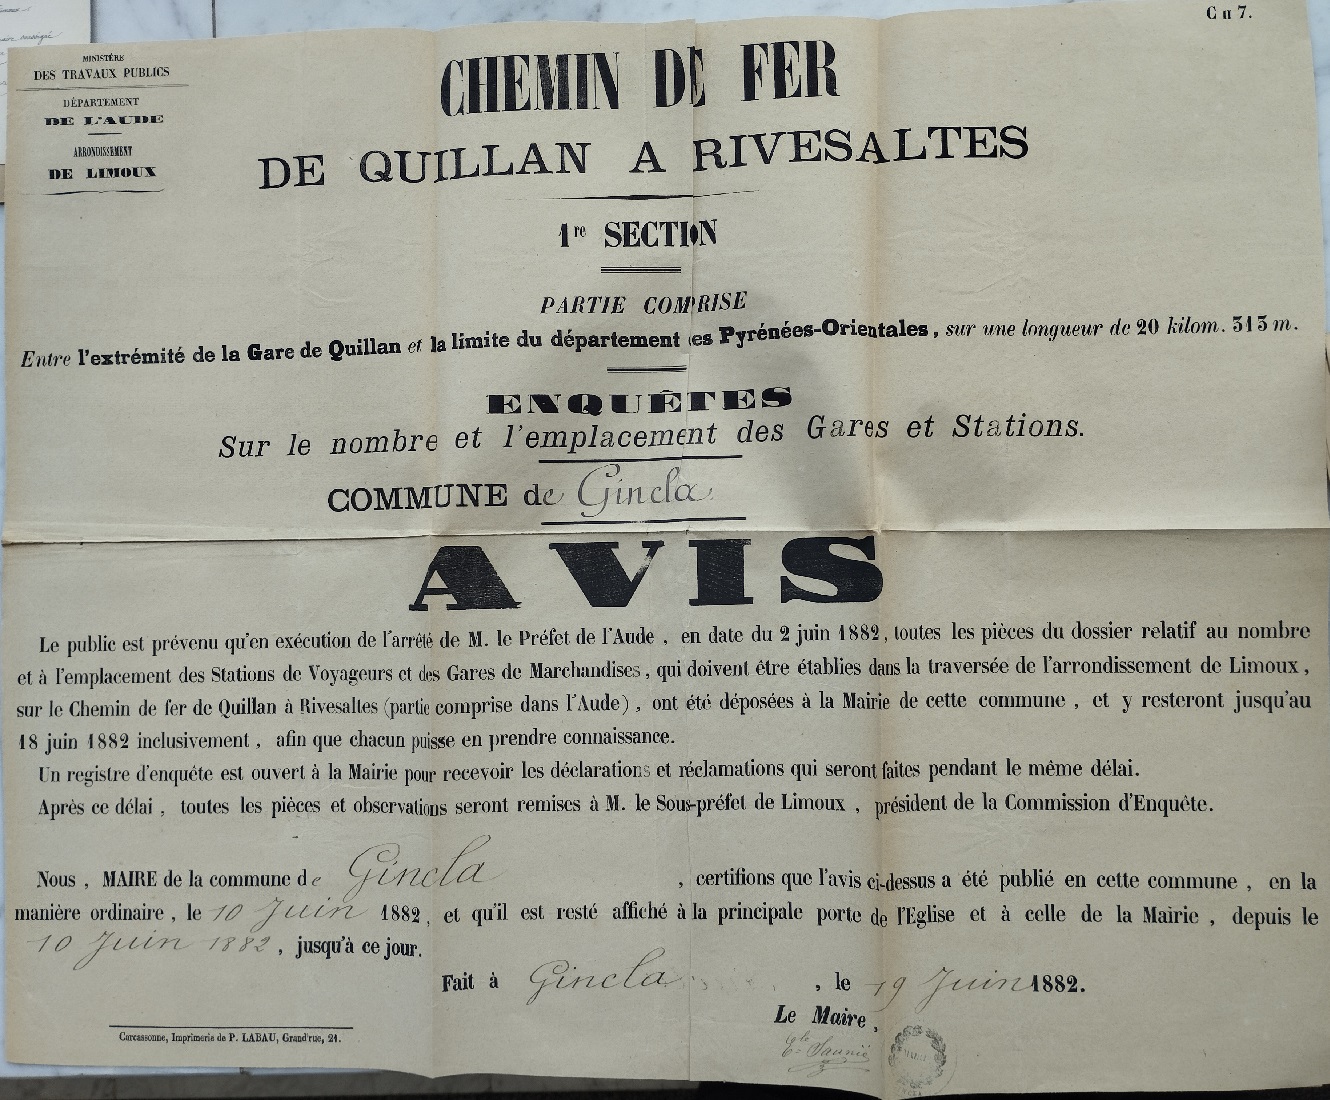 C n 7.
MINISTÈRE
DES TRAVAUX PUBLICS
DÉPARTEMENT
DE L'AUDE
ARRONDISSEMENT
DE LIMOUX
CHEMIN DE FER
DE QUILLAN A RIVESALTES
1re SECTION
PARTIE COMPRISE
Entre l'extrémité de la Gare de Quillan et la limite du département des Pyrénées-Orientales, sur une longueur de 20 kilom. 313 m.
ENQUÊTES
Sur le nombre et l'emplacement des Gares et Stations.
COMMUNE de Gincla
AVIS
Le public est prévenu qu'en exécution de l'arrêté de M. le Préfet de l'Aude, en date du 2 juin 1882, toutes les pièces du dossier relatif au nombre
et à l'emplacement des Stations de Voyageurs et des Gares de Marchandises, qui doivent être établies dans la traversée de l'arrondissement de Limoux,
sur le Chemin de fer de Quillan à Rivesaltes (partie comprise dans l'Aude), ont été déposées à la Mairie de cette commune, et y resteront jusqu'au
18 juin 1882 inclusivement, afin que chacun puisse en prendre connaissance.
Un registre d'enquête est ouvert à la Mairie pour recevoir les déclarations et réclamations qui seront faites pendant le même délai.
Après ce délai, toutes les pièces et observations seront remises à M. le Sous-préfet de Limoux, président de la Commission d'Enquête.
Nous, MAIRE de la commune de Gincla, certifions que l'avis ci-dessus a été publié en cette commune, en la
manière ordinaire, le 10 Juin 1882, et qu'il est resté affiché à la principale porte de l'Eglise et à celle de la Mairie, depuis le
10 Juin 1882, jusqu'à ce jour.
Fait à Gincla, le 19 Juin 1882.
Le Maire,
Carcassonne, Imprimerie de P. LABAU, Grand'rue, 21.